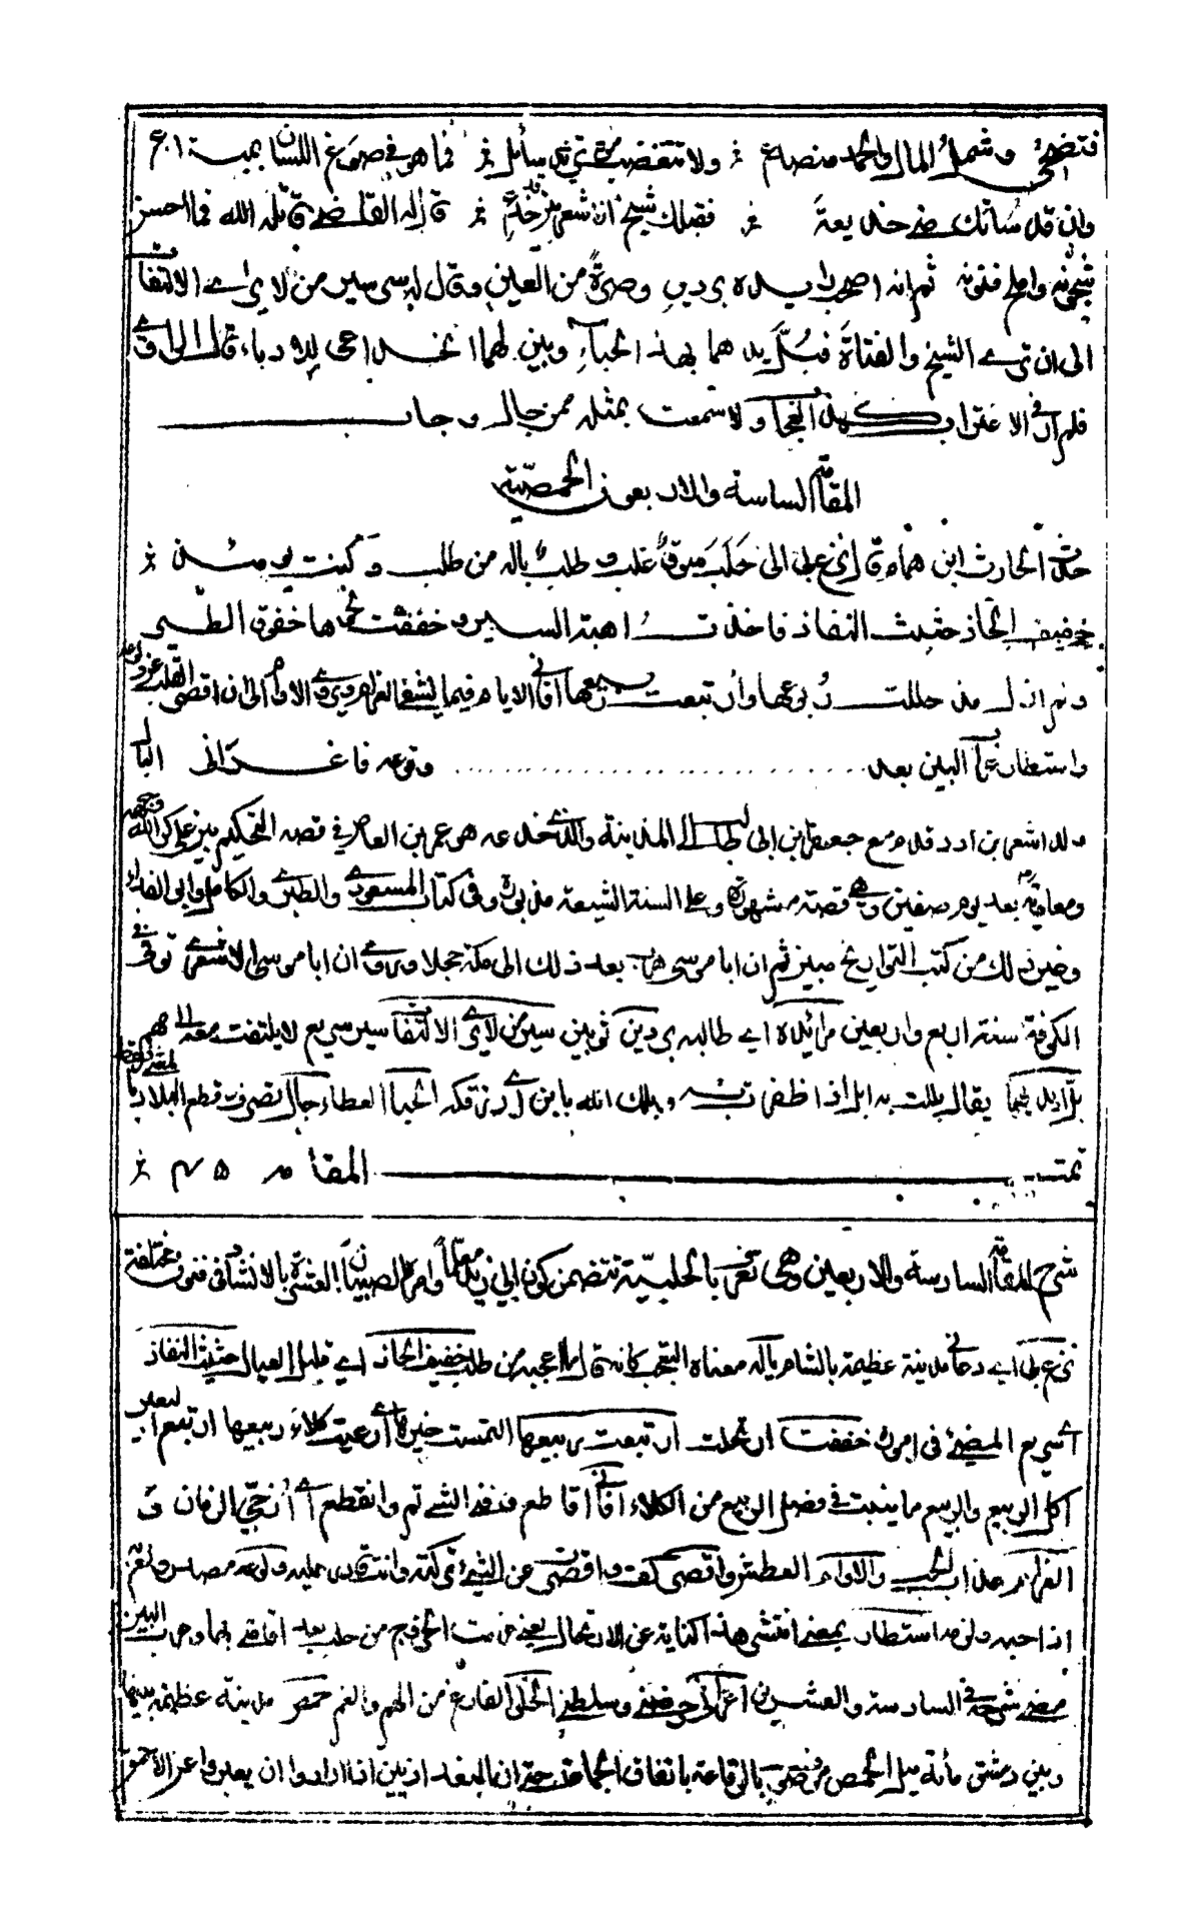 فتضحي وشمل المال والحمد منصدع ولا تغضب متى تزيد سائل فما هو في صوغ اللسان بمبتدع
وان قد ساءتك مني خديعة فقبلك شيخ الاشعريين قد خدع قال له القاضي قاتله الله فما احسن
شجونه واملح فنونه ثم انه اصحب رايده بردين وصرة من العين وقال له سر سير من لا يرى الالتفات
الى ان ترى الشيخ والفتاة فبل يديهما بهذا الحباء وبين لهما انخداعي للادباء قال الراوي
فلم ار في الاغتراب كهذا العجاب ولا سمعت بمثله ممن جال وجاب
المقامة الساسة والاربعون الحمصية
حدث الحارث ابن همام قال نزع بي الى حلب شوق غلب وطلب ياله من طلب وكنت يومئذ
خفيف الحاذ حثيث النفاذ فاخذت اهبة السير وخففت نحوها خفوق الطير
ولم ازل مذ حللت ربوعها وارتبعت ربيعها افاني الايام فيما يشفي الغرام ويروي الاوام الى ان اقصر القلب عن ولوعه
واستطار غراب البين بعد وقوعه فاغراني البال
ولد اشعر بن ادد قدم مع جعفر ابن ابي طالب الى المدينة والذي خدعه هو عمر بن العاص في قصة التحكيم بين علي كرم الله وجهه
ومعاوية بعد يوم صفين وهي قصة مشهورة وعلى السنة الشيعة مذبورة وفي كتاب المسعودي والطبري والكامل وابو الفداء
وغير ذلك من كتب التواريخ مبين ثم ان ابا موسى هرب بعد ذلك الى مكة خجلا وروي ان ابا موسى الاشعري توفي في
الكوفة سنة اربع واربعين رائده اي طالبه بردين ثوبين سير من لا يرى الالتفات سير سريع لا يلتفت معه
بل ايديهما يقال بللت به ابل اذا ظفرت به وبلك الله بابن اي رزقكه الحبا العطاء جال تصرف وقطع البلاد
تمت المقامه ٤٥
شرح المقامة السادسة والاربعين وهي تعرف بالحلبية تتضمن كون ابي زيد معلما وامره الصبيان العشرة بالانشاد في فنون مختلفة
نزع بي اي دعاني مدينة عظيمة بالشام ياله معناه التعجب كانه قال اعجبه من طلب خفيف الحاذ اي قليل العيال حثيث النفاذ
اي سريع المضي في اموره خففت ارتحلت ارتبعت ربيعها التمست خيرها اي رعيت كلاء ربيعها ارتبع البعير
اكل الربيع والربيع ما ينبت في فصل الربيع من الكلاء افاني اقاطع فنفد الشي تم وانقطع اي ازجي الزمان
الغرام عذاب الحب والاوام العطش واقصر كف واقصر عن الشي تركته وانت قادر عليه ولوعه مصدر ولع
اذا احبه ولزمه استطار بمعنى انتشر هذه كناية عن الارتحال يعني عزمت الخروج من حلب بعد اقامتي بها وغراب البين
مضى شرحه في السادسة والعشرين اغراني حرضني وسلطني الخلي الفارغ من الهم والغم حمص مدينة عظيمة بينها
وبين دمشق مائة ميل الحمص مختصين بالرقاعة باتفاق الجماعة حتى ان البغداديين اذا ارادوا ان يعبروا عن الاحمق